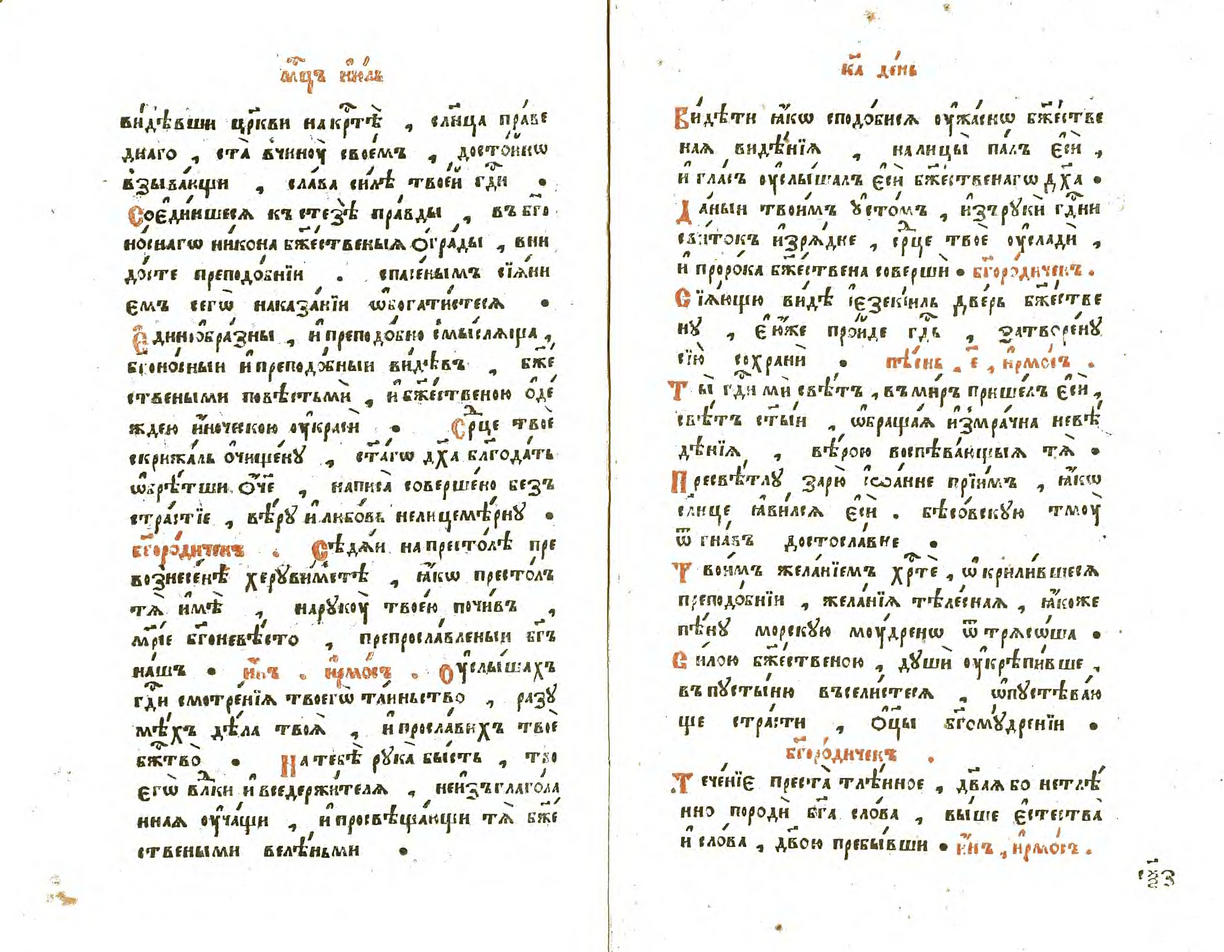 мц҃ъ їю́ль
ви́дѣвши цр҃кви на кр҃тѣ̀ , сл҃нца пра́ве
днаго , ста̀ вчиноу̀ свое́мъ , досто́йнѡ
взыва́ющи , сла́ва си́лѣ твое́й гд҃и •
Соедини́шеся къ стезѣ̀ пра́вды , въ бг҃о
но́снагѡ ни́кона бж҃ественыѧ ѻ҆гра́ды , вни
до́сте преподо́бнїи . спасе́нымъ сїѧ́ни
емъ сегѡ̀ наказа́нїи ѡ҆богати́стеся •
Є҆динообра́зны , и҆ преподо́бно смы́слѧща ,
бг҃оно́сныи и҆ преподо́бныи ви́дѣвъ , бж҃е
ствеными по́вѣстьми , и҆ бж҃ественою ѻ҆де́
ждею и҆́ноческою оу҆красѝ • Ср҃це твоѐ
скрижа́ль ѻ҆чище́ну , ст҃а́гѡ дх҃а блг҃ода́ть
ѡ҆брѣ́тши ѻ҆́ч҃е , написа̀ соверше́но безъ
стра́стїе , вѣ́ру и҆ любо́вь нелицемѣ́рну •
бг҃оро́диченъ . Сѣдѧ́й на престо́лѣ пре
вознесе́нѣ херуви́мстѣ , ꙗ҆́кѡ престо́лъ
тѧ̀ и҆мѣ̀ , на рукоу̀ твое́ю почи́въ ,
мр҃і́е бг҃оневѣ́сто , препросла́вленыи бг҃ъ
на́шъ • и҆́нъ . і҆рмо́съ . Оу҆слы́шахъ
гд҃и смотре́нїѧ твоегѡ̀ та́иньство , разу
мѣ́хъ дѣла̀ твоѧ̀ , и҆ просла́вихъ твоѐ
бж҃тво̀ • На тебѣ̀ рука̀ бы́сть , тво
егѡ̀ влⷣки и҆ вседержи́телѧ , неизъглаго́ла
ннаѧ оу҆ча́щи , и҆ просвѣща́ющи тѧ̀ бж҃е
ствеными велѣ́ньми •
к҃а де́нь
Ви́дѣти ꙗ҆́кѡ сподо́бисѧ оу҆жа́снѡ бж҃естве
наѧ видѣ́нїѧ , на лицы̀ па́лъ є҆сѝ ,
и҆ гла́съ оу҆слы́шалъ є҆сѝ бж҃ественагѡ дх҃а •
Да́ныи твои́мъ ᲂу҆сто́мъ , и҆зъ рукѝ гд҃ни
сви́токъ и҆зрѧ́дне , ср҃це твоѐ оу҆сладѝ ,
и҆ проро́ка бж҃ествена совершѝ • бг҃оро́диченъ .
Сїѧ́ющю ви́дѣ і҆езекі́иль две́рь бж҃естве
ну , є҆ю́же про́йде гд҃ь , затворе́ну
сїю̀ сохранѝ • пѣ́снь , є҃ , і҆рмо́съ .
Ты̀ гд҃и мѝ свѣ́тъ , въ ми́ръ прише́лъ є҆сѝ ,
свѣ́тъ ст҃ы́и , ѡ҆браща́ѧ и҆з̾ мра́чна невѣ́
дѣнїѧ , вѣ́рою воспѣва́ющыѧ тѧ̀ •
Пресвѣ́тлу зарю̀ і҆ѡа́нне прїи́мъ , ꙗ҆́кѡ
сл҃нце ꙗ҆ви́лсѧ є҆сѝ . бѣсо́вскую тмоу̀
ѿгна́въ достосла́вне •
Твои́мъ жела́нїемъ хр҃тѐ , ѡ҆крили́вшеесѧ
преподо́бнїи , жела́нїѧ тѣле́снаѧ , ꙗ҆́коже
пѣ́ну морску́ю моу́дренѡ ѿтрѧсо́ша •
Си́лою бж҃ественою , ду́ши оу҆крѣпи́вше ,
въ пусты́ню въсели́стесѧ , ѡ҆пустѣва́ю
ще стра́сти , ѻ҆ц҃ы бг҃ому́дренїи •
бг҃оро́диченъ .
Тече́нїе преста̀ тлѣ́нное , дв҃аѧ бо нетлѣ́
нно породѝ бг҃а сло́ва , вы́ше є҆стества̀
и҆ сло́ва , дв҃ою пребы́вши • и҆́нъ , і҆рмо́съ .